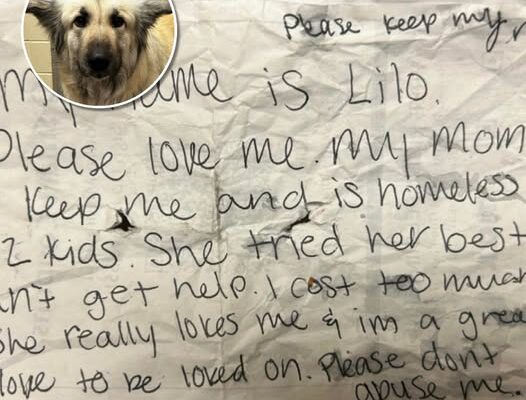 Please keep my
my name is Lilo.
Please love me. My mom
keep me and is homeless
2 kids. She tried her best
n't get help. I cost too much
she really loves me & im a grea
love to be loved on. Please dont
abuse me.